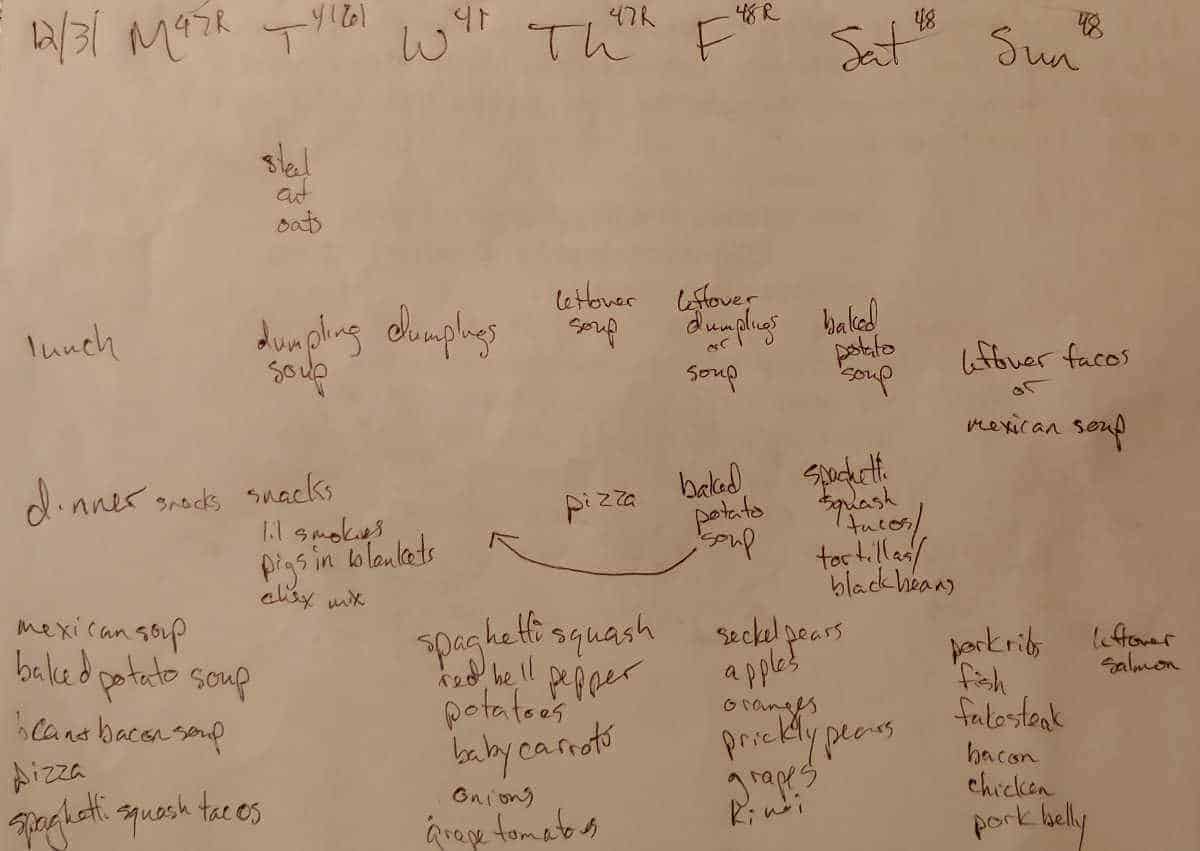 12/31 M 47R T W 41 Th 47R F 48R Sat 48 Sun 48
steel
cut
oats
lunch
dumpling
soup
dumplings
leftover
soup
leftover
dumplings
or
soup
baked
potato
soup
leftover tacos
or
mexican soup
dinner snacks
snacks
lil smokies
pigs in blankets
chex mix
pizza
baked
potato
soup
spaghetti
squash
tacos/
tortillas/
black beans
mexican soup
baked potato soup
bacon soup
pizza
spaghetti squash tacos
spaghetti squash
red bell pepper
potatoes
baby carrots
onions
grape tomatoes
seckel pears
apples
oranges
prickly pears
grapes
kiwi
pork ribs
fish
fake steak
bacon
chicken
pork belly
leftover
salmon